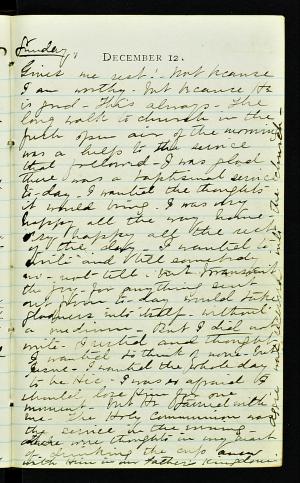 Sunday,
DECEMBER 12.
Gives me rest! - Not because
I am worthy - but because He
is good - That's always - The
long walk to church in the
fresh open air of the morning
was a help to the service
that followed - I was glad
there was a baptismal service
to-day. I wanted the thoughts
it would bring. I was very
happy all the way home -
very happy all the rest
of the day - I wanted to
write and tell somebody
the joy - for anything sent
to-day would take
gladness into itself - without
a medium - But I did not
write. I rested and thought
I wanted to think of none - but
Jesus - I wanted the whole day
to be His - I was so afraid I
should lose Him for one
moment - But He stayed with
me - The Holy Communion was
the service in the evening -
there were thoughts in my heart
of drinking the cup anew
with Him in our Father's Kingdom.